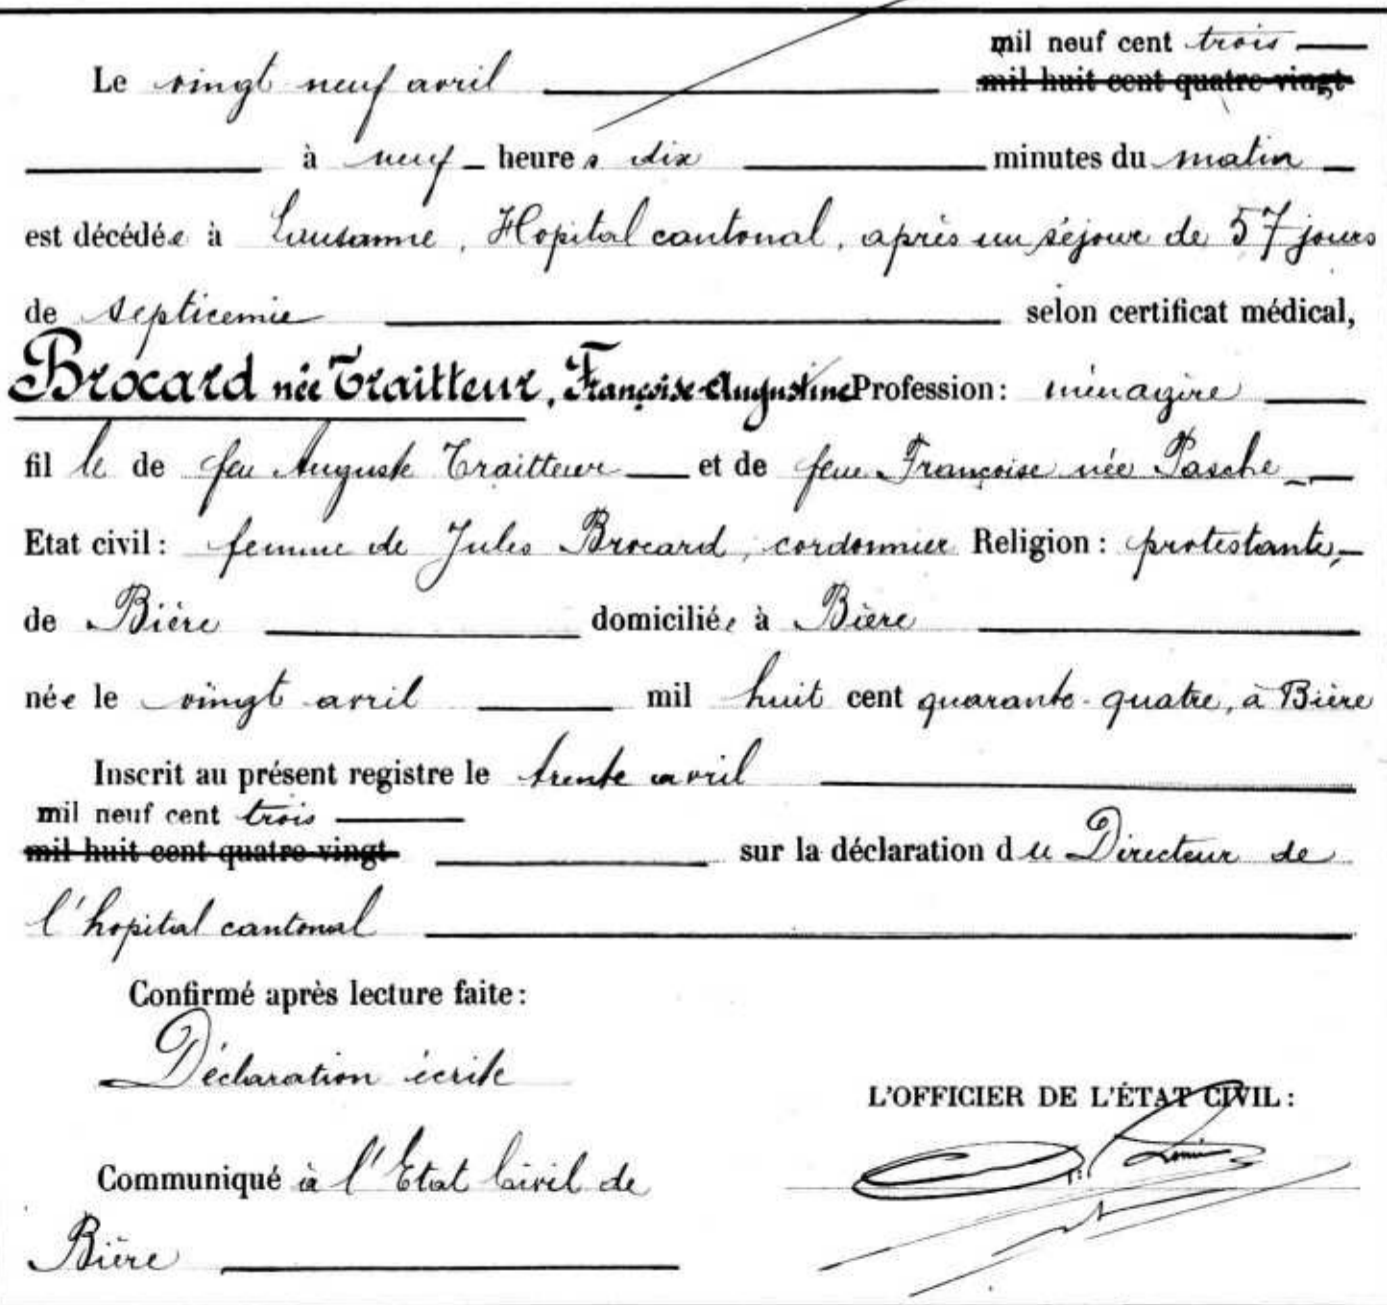 mil neuf cent trois
Le vingt neuf avril mil huit cent quatre-vingt
à neuf heures dix minutes du matin
est décédée à Lausanne, Hopital cantonal, après un séjour de 57 jours
de septicemie selon certificat médical,
Brocard née Traitteur, Françoise-Augustine Profession: ménagère
fille de feu Auguste Traitteur et de feue Françoise née Pasche
Etat civil: femme de Jules Brocard, cordonnier Religion: protestante,
de Bière domiciliée à Bière
née le vingt avril mil huit cent quarante-quatre, à Bière
Inscrit au présent registre le trente avril
mil neuf cent trois
mil huit cent quatre-vingt sur la déclaration du Directeur de
l'hopital cantonal
Confirmé après lecture faite:
Déclaration écrite
L'OFFICIER DE L'ÉTAT CIVIL:
Communiqué à l'Etat Civil de
Bière